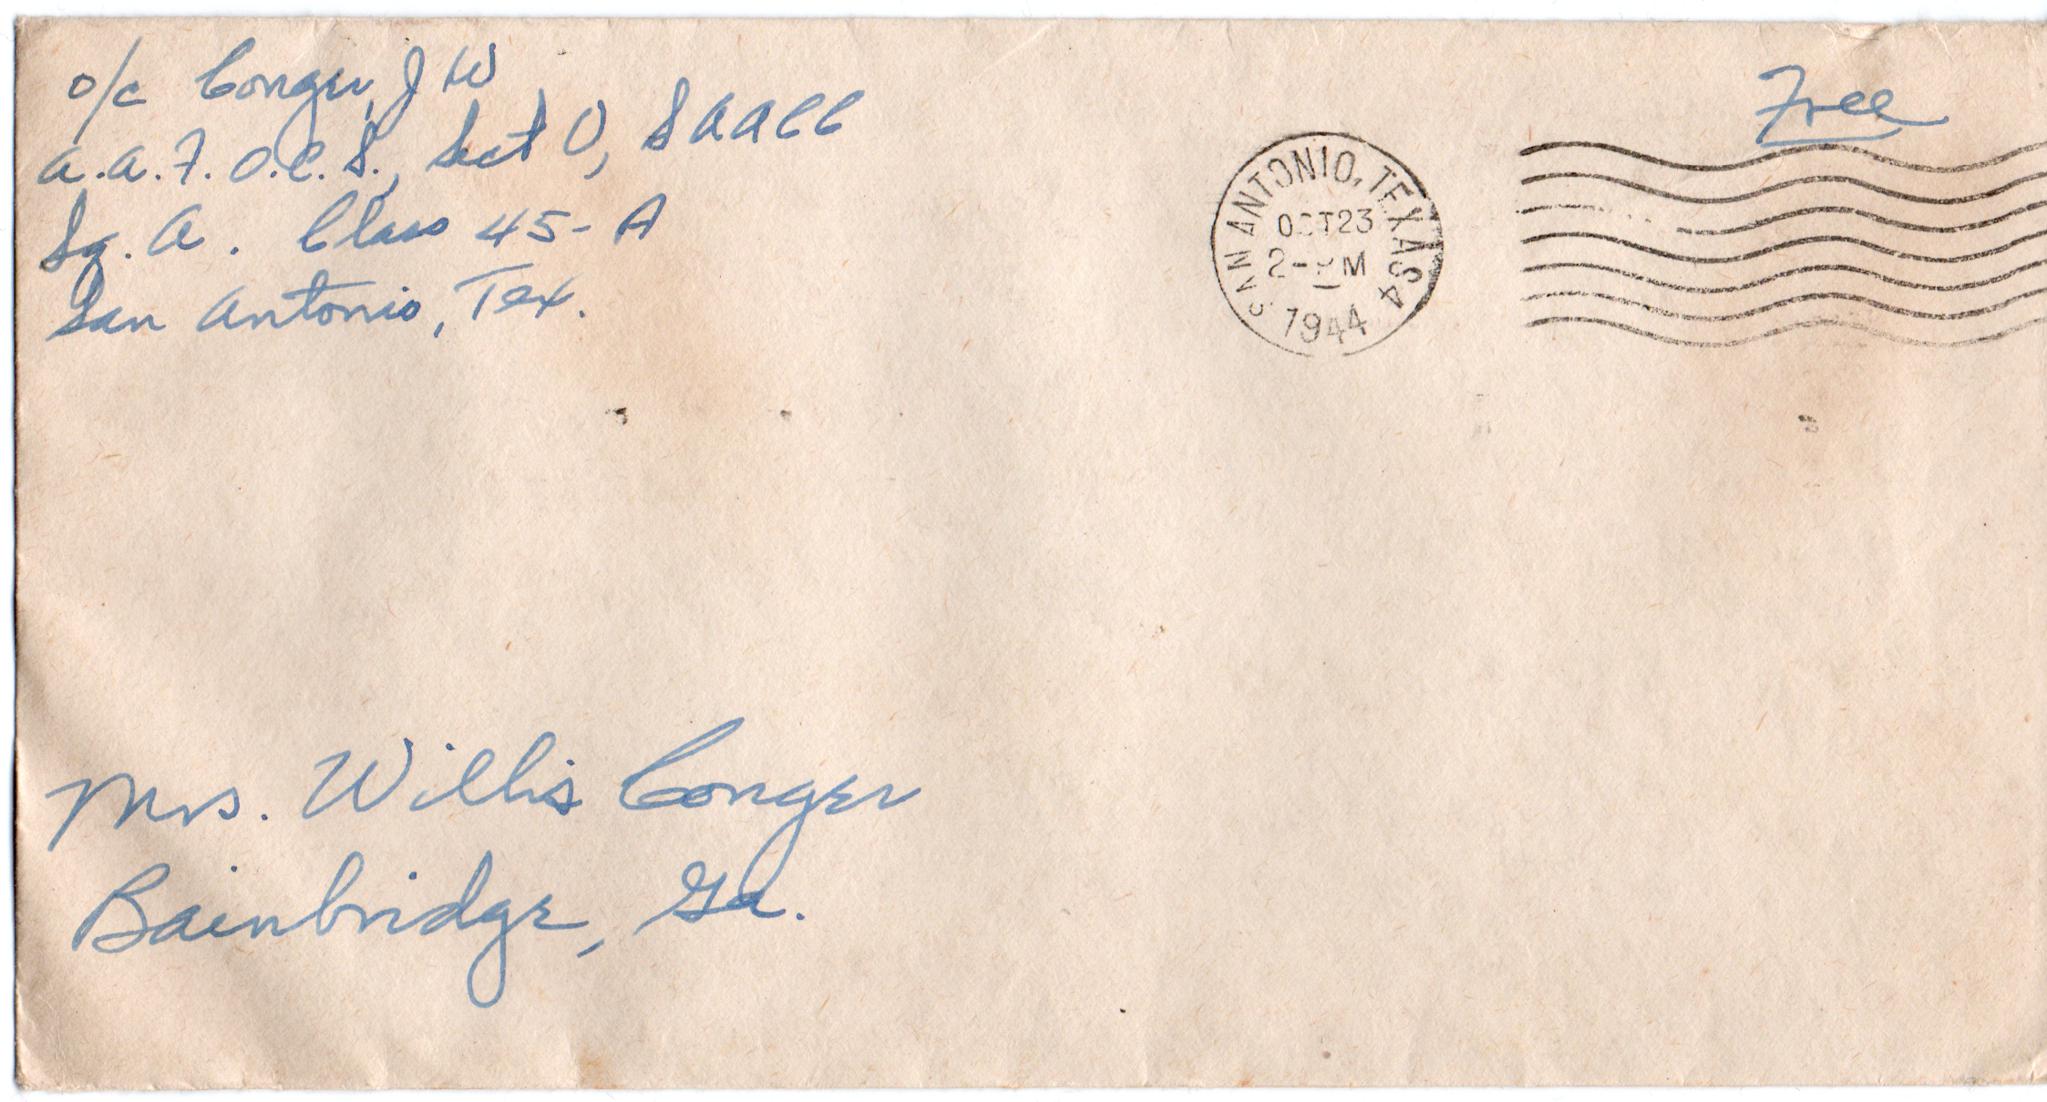 o/c Conger, J W
A.A.F. O.C.S., Sect O, SAACC
Sq. A. Class 45-A
San Antonio, Tex.
Free
SAN ANTONIO, TEXAS 4
OCT 23
2-PM
1944
Mrs. Willis Conger
Bainbridge, Ga.